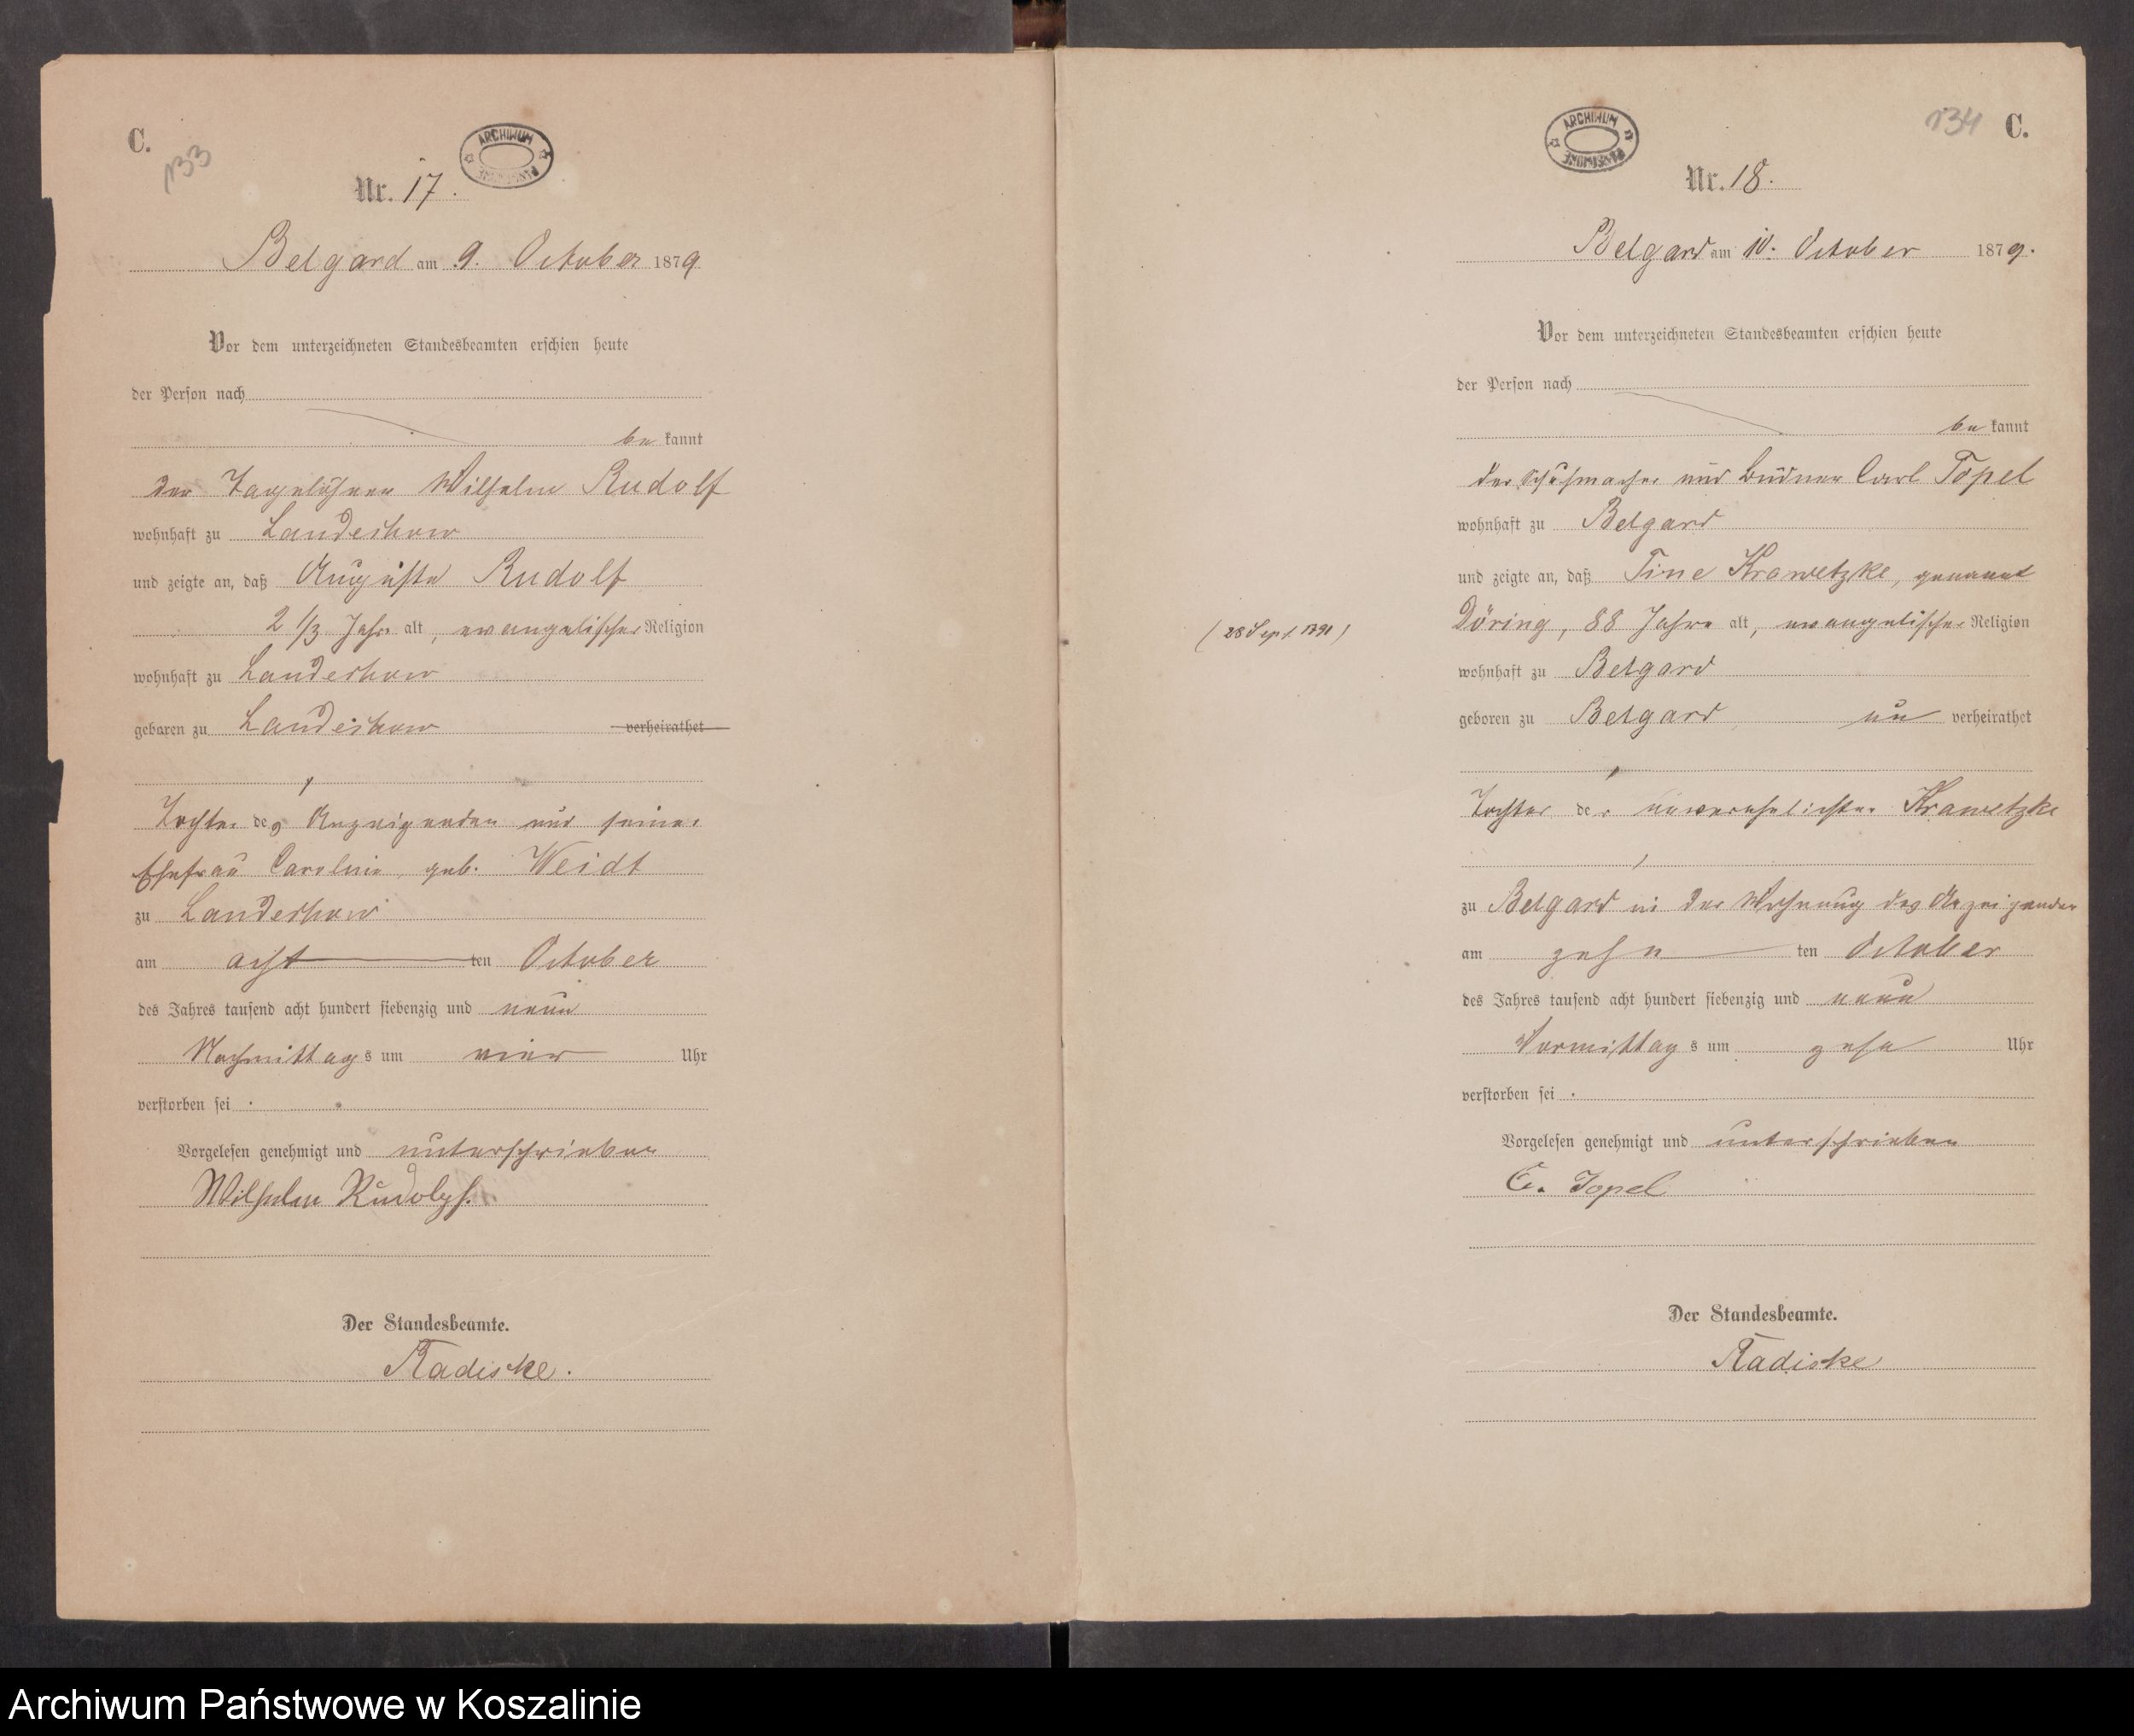 C.
133
ARCHIWUM
Nr. 17.
Belgard am 9. October 1879
Vor dem unterzeichneten Standesbeamten erschien heute
der Person nach
be kannt
der Tagelöhner Wilhelm Rudolf
wohnhaft zu Landechow
und zeigte an, daß Auguste Rudolf
2 1/3 Jahr alt, evangelischer Religion
wohnhaft zu Landechow
geboren zu Landechow verheirathet
Tochter des Anzeigenden und seiner
Ehefrau Caroline, geb. Weidt
zu Landechow
am acht ten October
des Jahres tausend acht hundert siebenzig und neun
Nachmittags um vier Uhr
verstorben sei.
Vorgelesen genehmigt und unterschrieben
Wilhelm Rudolph.
Der Standesbeamte.
Radiske.
134 C.
ARCHIWUM
Nr. 18.
Belgard am 10. October 1879.
Vor dem unterzeichneten Standesbeamten erschien heute
der Person nach
be kannt
der Schuhmacher und Büdner Carl Topel
wohnhaft zu Belgard
und zeigte an, daß Tine Krawetzke, genannt
(28 Sept. 1791) Döring, 88 Jahre alt, evangelischer Religion
wohnhaft zu Belgard
geboren zu Belgard un verheirathet
Tochter der unverehelichten Krawetzke
zu Belgard in der Wohnung des Anzeigenden
am zehn ten October
des Jahres tausend acht hundert siebenzig und neun
Vormittags um zehn Uhr
verstorben sei.
Vorgelesen genehmigt und unterschrieben
C. Topel
Der Standesbeamte.
Radiske
Archiwum Państwowe w Koszalinie